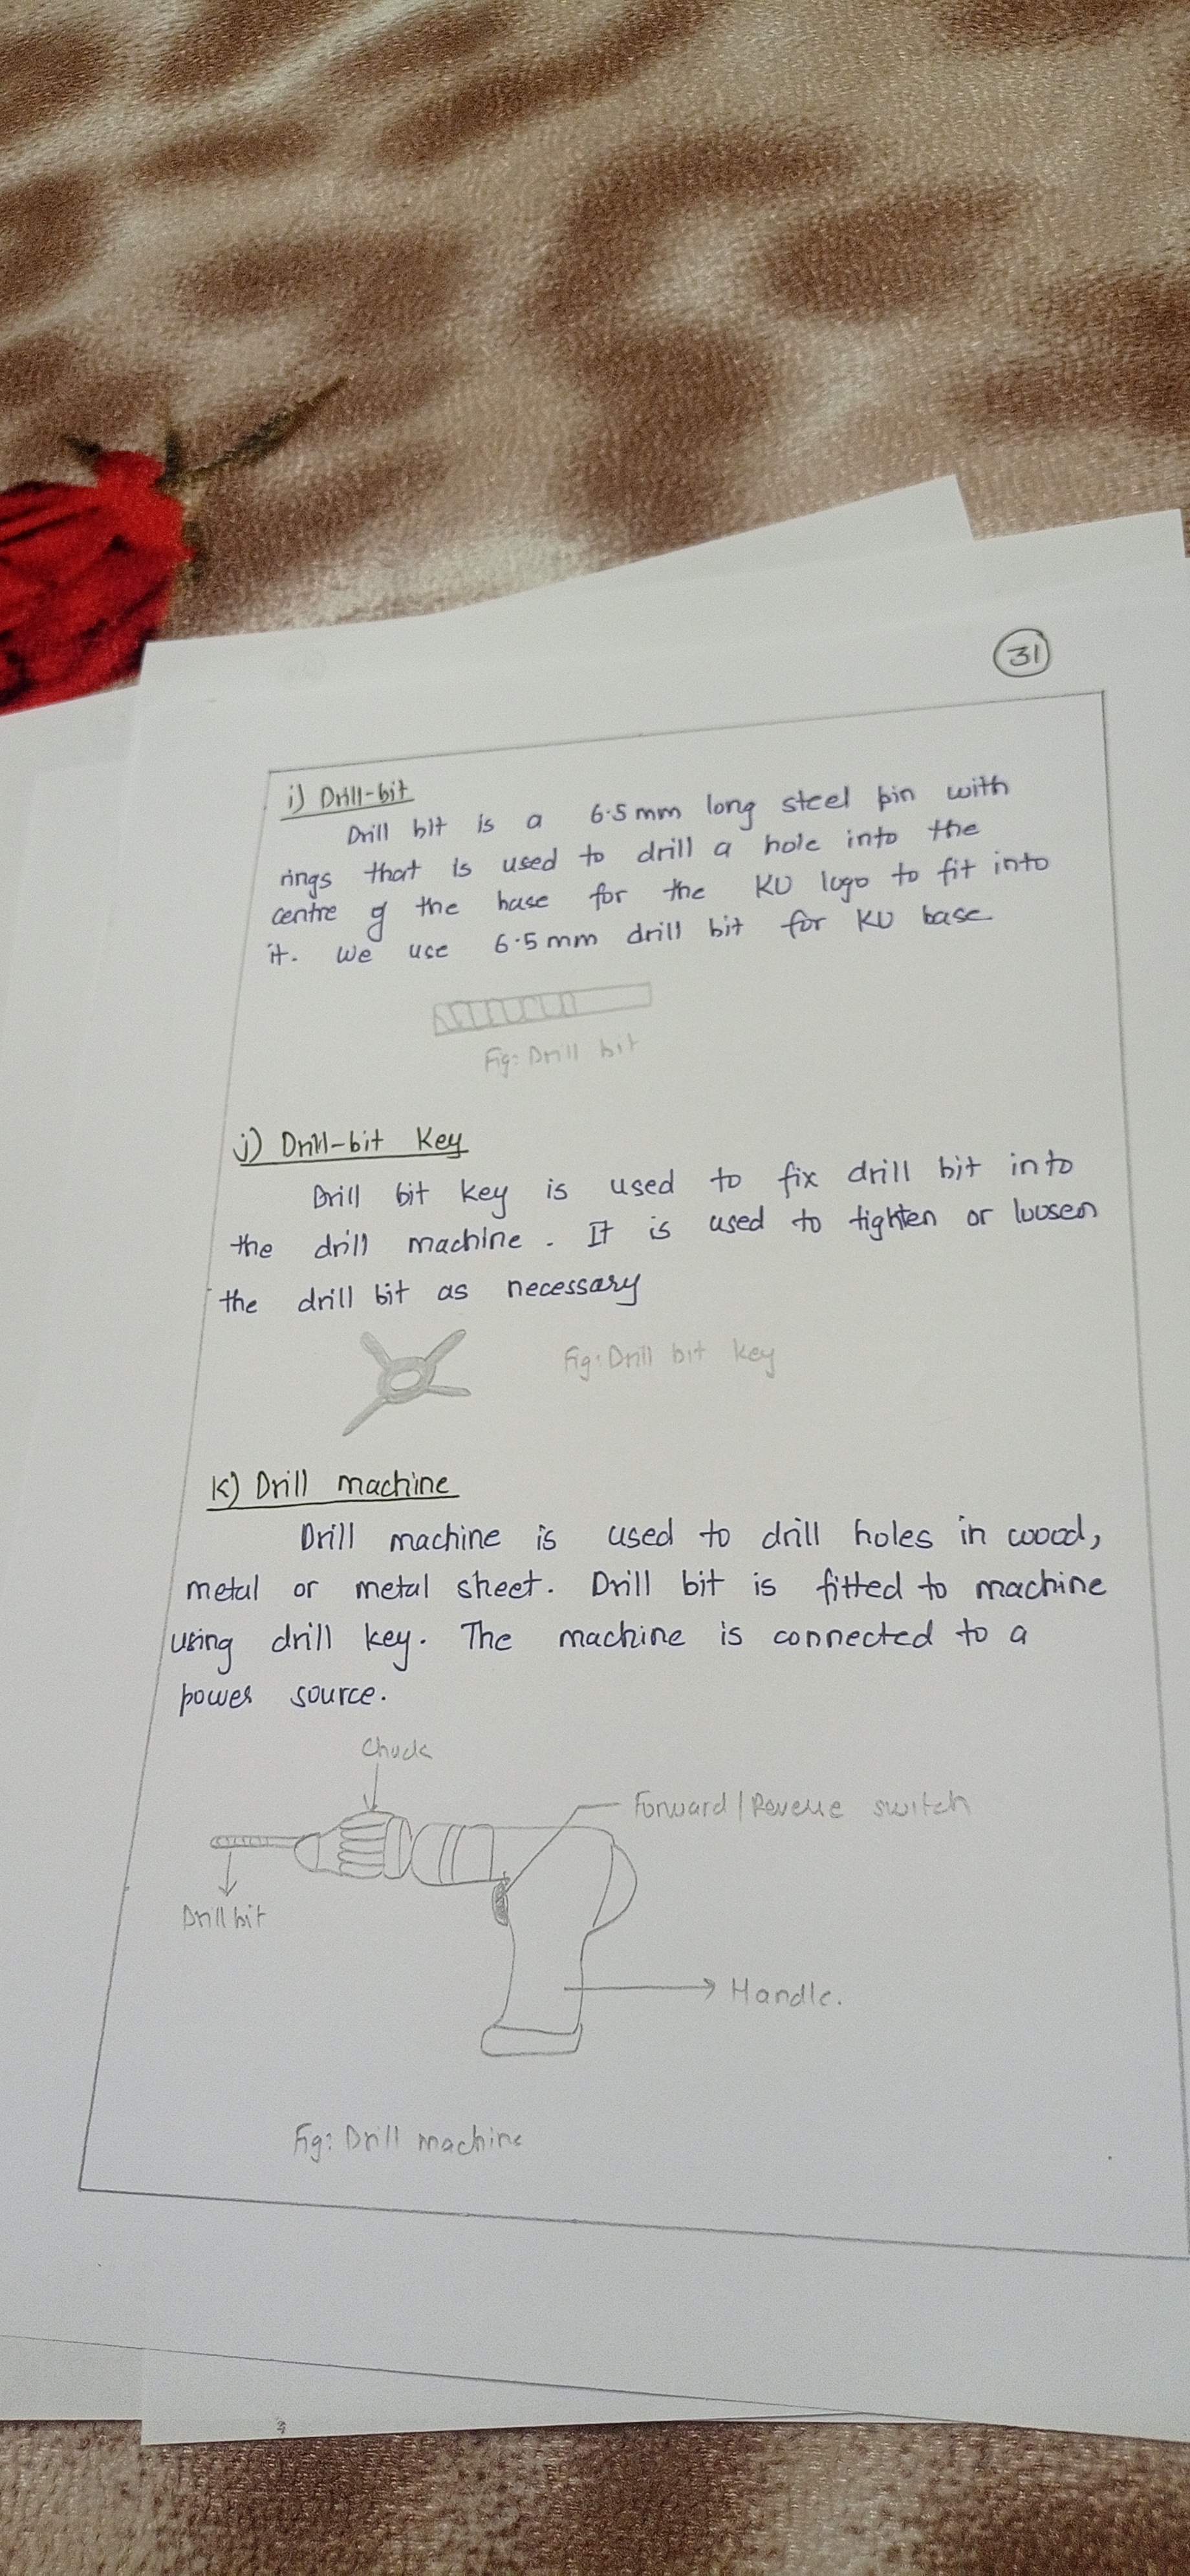 31
i) Drill-bit
Drill bit is a 6.5mm long steel pin with
rings that is used to drill a hole into the
centre of the base for the KU logo to fit into
it. We use 6.5mm drill bit for KU base.
Fig: Drill bit
j) Drill-bit Key
Drill bit key is used to fix drill bit into
the drill machine. It is used to tighten or loosen
the drill bit as necessary
Fig: Drill bit key
k) Drill machine
Drill machine is used to drill holes in wood,
metal or metal sheet. Drill bit is fitted to machine
using drill key. The machine is connected to a
power source.
Chuck
Forward/Reverse switch
Drill bit
Handle.
Fig: Drill machine